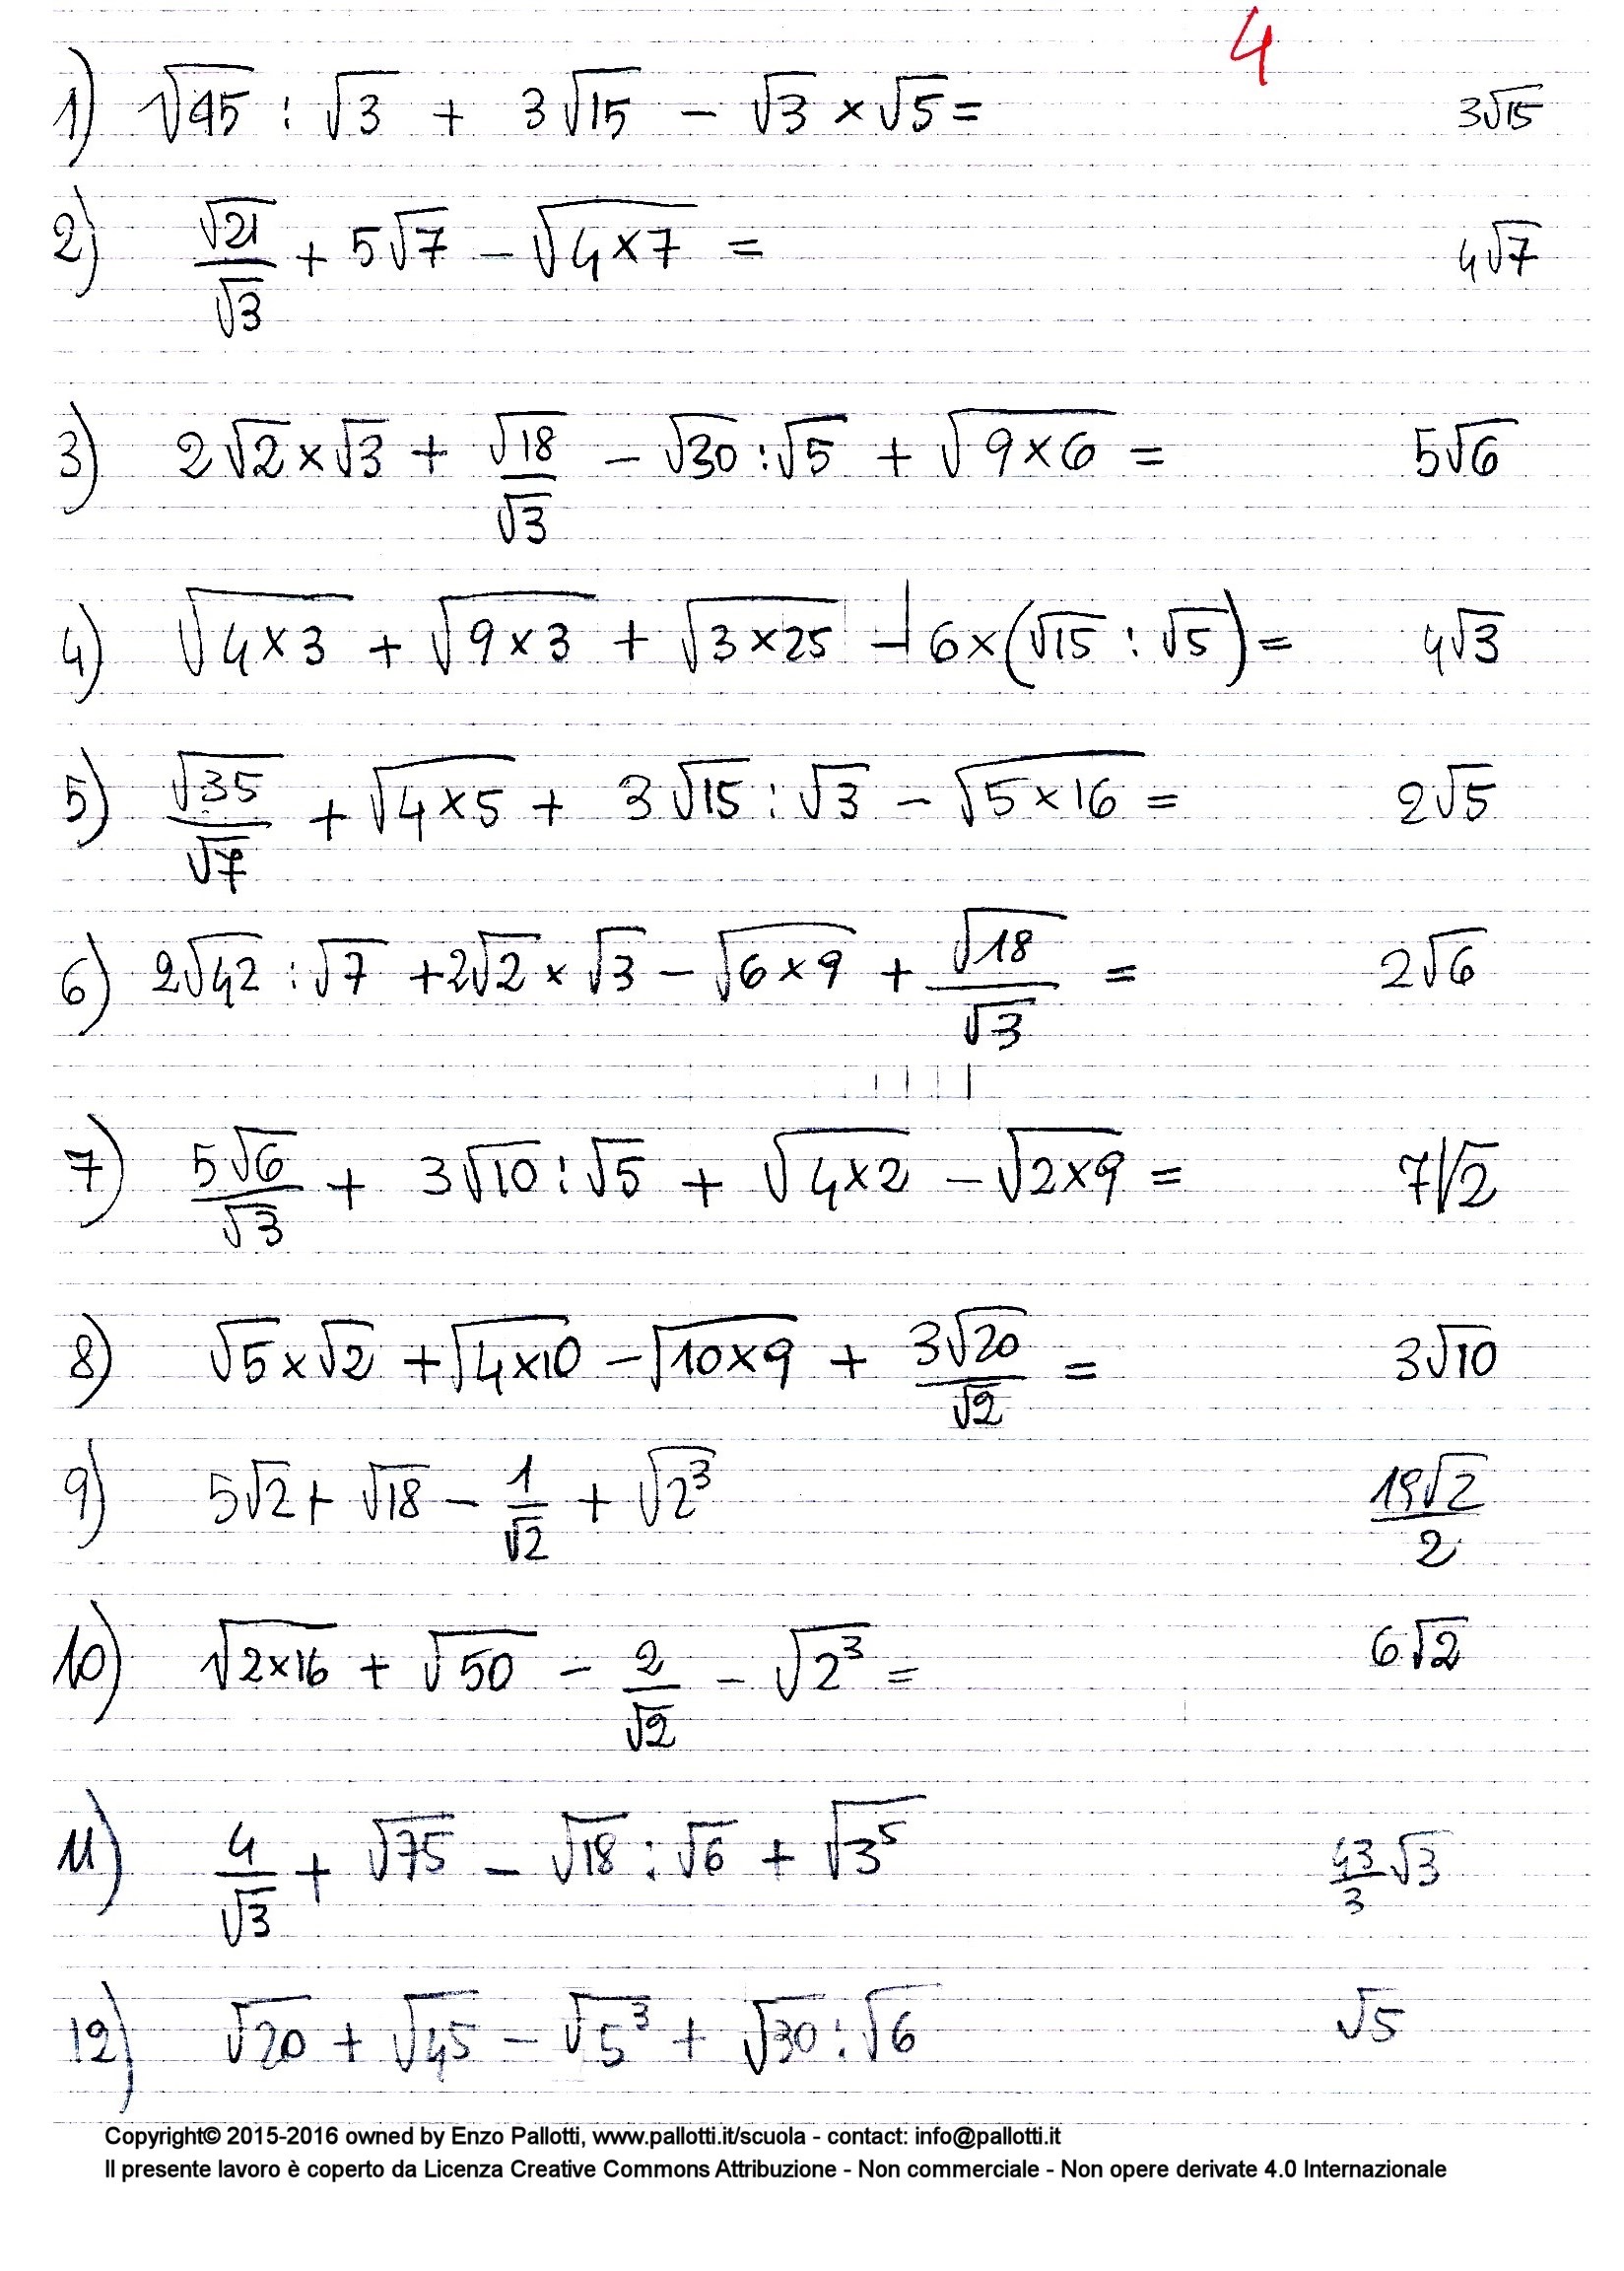 4
1) √45 : √3 + 3√15 - √3 × √5 = 3√15
2) √21/√3 + 5√7 - √(4×7) = 4√7
3) 2√2×√3 + √18/√3 - √30:√5 + √(9×6) = 5√6
4) √(4×3) + √(9×3) + √(3×25) - 6×(√15 : √5) = 4√3
5) √35/√7 + √(4×5) + 3√15 : √3 - √(5×16) = 2√5
6) 2√42 : √7 + 2√2 × √3 - √(6×9) + √18/√3 = 2√6
7) 5√6/√3 + 3√10 : √5 + √(4×2) - √(2×9) = 7√2
8) √5×√2 + √(4×10) - √(10×9) + 3√20/√2 = 3√10
9) 5√2 + √18 - 1/√2 + √2³ 19√2/2
10) √(2×16) + √50 - 2/√2 - √2³ = 6√2
11) 4/√3 + √75 - √18 : √6 + √3⁵ 43/3 √3
12) √20 + √45 - √5³ + √30 : √6 √5
Copyright© 2015-2016 owned by Enzo Pallotti, www.pallotti.it/scuola - contact: info@pallotti.it
Il presente lavoro è coperto da Licenza Creative Commons Attribuzione - Non commerciale - Non opere derivate 4.0 Internazionale